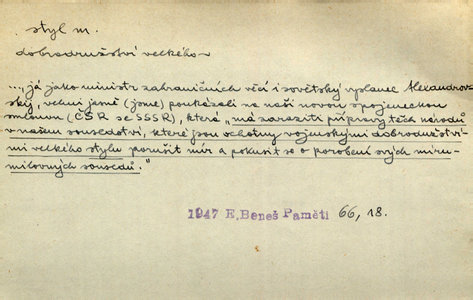 styl m.
dobrodružství velkého ~
..., "já jako ministr zahraničních věcí i sovětský vyslanec Alexandrov-
ský, velmi jasně (jsme) poukázali na naši novou spojeneckou
smlouvu (ČSR se SSSR), která "má zaraziti přípravy těch národů
v našem sousedství, které jsou ochotny vojenskými dobrodružství-
mi velkého stylu porušit mír a pokusit se o porobení svých míru-
milovných sousedů."
1947 E. Beneš Paměti 66, 18.